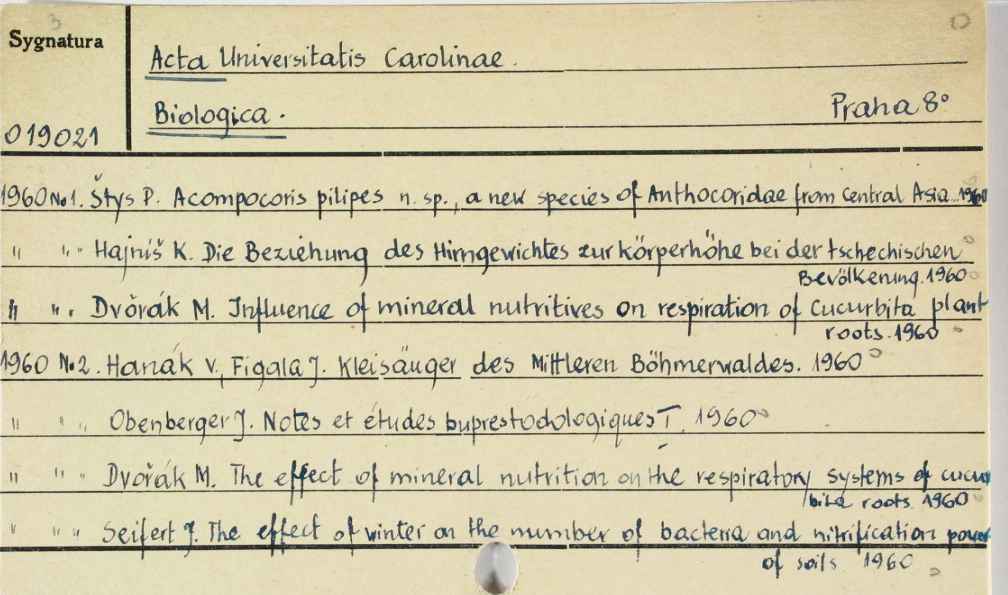 3
Sygnatura
Acta Universitatis Carolinae.
Biologica.
Praha 8°
019021
1960 No 1. Štys P. Acompocoris pilipes n. sp., a new species of Anthocoridae from Central Asia. 1960
" " " Hajniš K. Die Beziehung des Hirngewichtes zur körperhöhe bei der tschechischen
Bevölkerung. 1960
" " " Dvořák M. Influence of mineral nutritives on respiration of Cucurbita plant
roots. 1960
1960 No 2. Hanák V., Figala J. Kleisäuger des Mittleren Böhmerwaldes. 1960
" " " Obenberger J. Notes et études buprestodologiques I. 1960
" " " Dvořák M. The effect of mineral nutrition on the respiratory systems of cucur
bita roots. 1960
" " " Seifert J. The effect of winter on the number of bacteria and nitrification power
of soils 1960